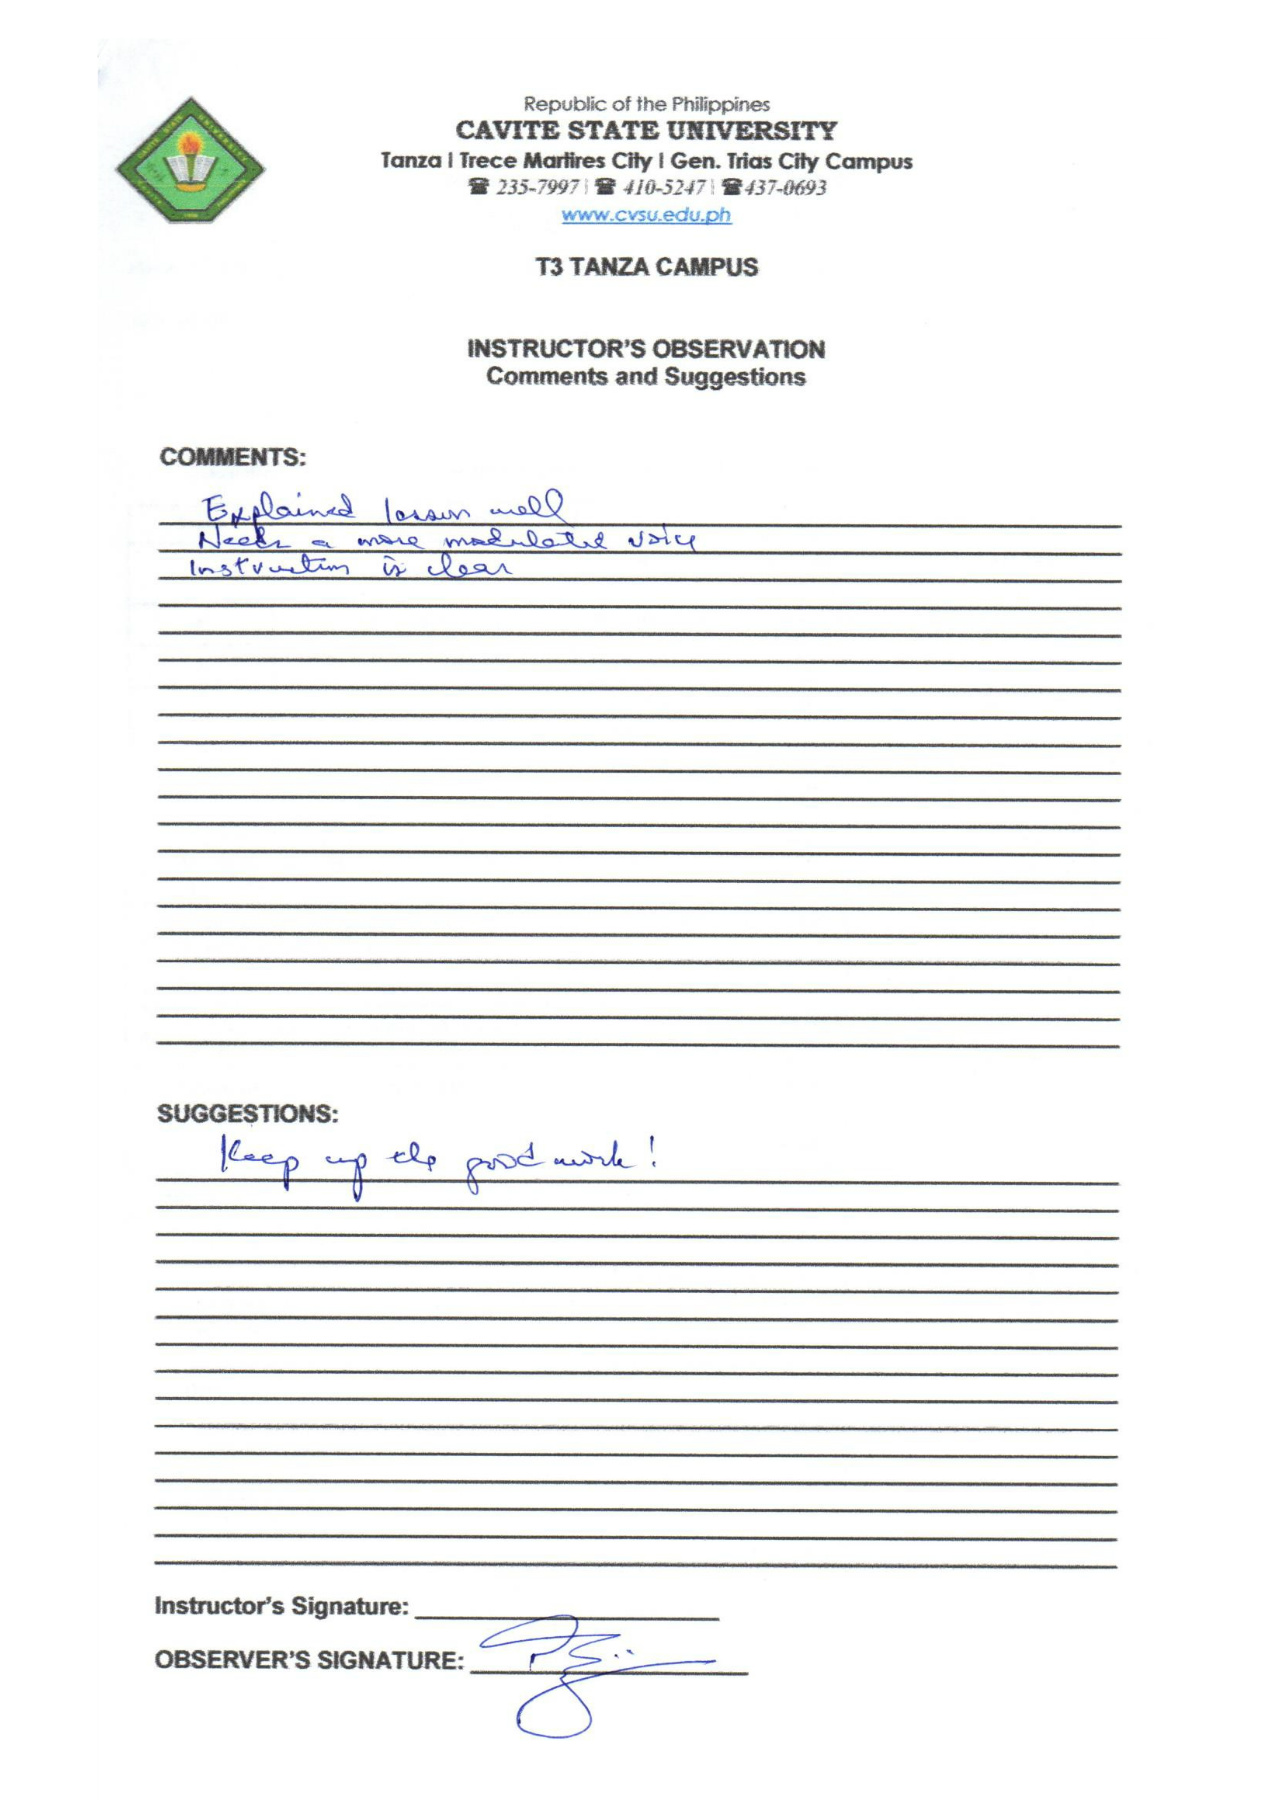 Republic of the Philippines
CAVITE STATE UNIVERSITY
Tanza | Trece Martires City | Gen. Trias City Campus
☎ 235-7997 | ☎ 410-5247 | ☎437-0693
www.cvsu.edu.ph
T3 TANZA CAMPUS
INSTRUCTOR'S OBSERVATION
Comments and Suggestions
COMMENTS:
Explained lesson well
Needs a more modulated voice
Instruction is clear
SUGGESTIONS:
Keep up the good work!
Instructor's Signature:
OBSERVER'S SIGNATURE: